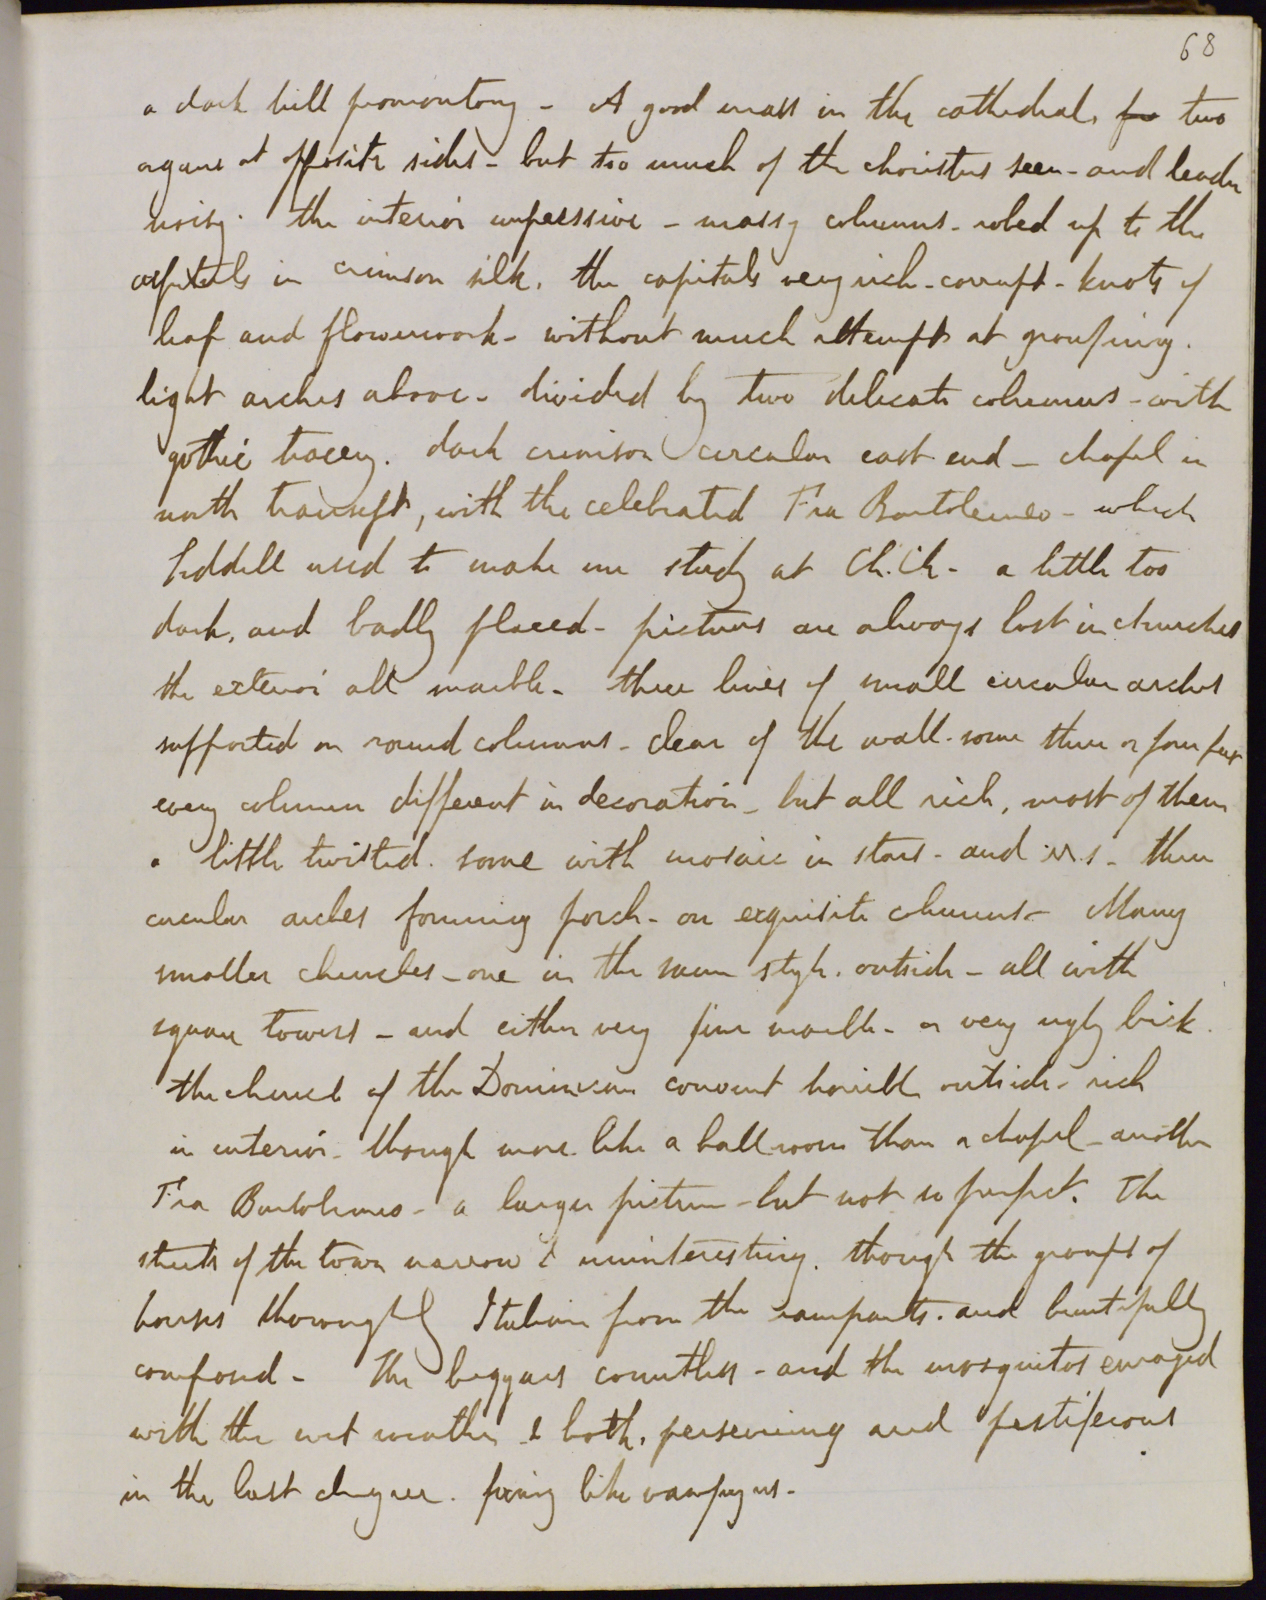 68
a dark hill promontory - A good mass in the cathedral, for two
organs at opposite sides - but too much of the choristers seen - and leader
noisy. the interior impressive - massy columns - robed up to the
capitals in crimson silk. the capitals very rich - corrupt - knots of
leaf and flowerwork - without much attempt at grouping.
light arches above - divided by two delicate columns - with
gothic tracery. dark crimson circular east end - chapel in
north transept, with the celebrated Fra Bartolomeo - which
Liddell used to make me study at Ch. Ch. - a little too
dark, and badly placed - pictures are always lost in churches
the exterior all marble - three lines of small circular arches
supported on round columns - clear of the wall - some three or four feet
every column different in decoration - but all rich, most of them
a little twisted. some with mosaic in stars - and - three
circular arches forming porch - on exquisite columns - Many
smaller churches - one in the same style. outside - all with
square towers - and either very fine marble - or very ugly brick.
the church of the Dominican convent horrible outside - rich
in interior - though more like a ball room than a chapel - another
Fra Bartolomeo - a larger picture - but not so perfect. The
streets of the town narrow & uninteresting. though the groups of
houses thoroughly Italian from the ramparts. and beautifully
composed - The beggars countless - and the mosquitos enraged
with the wet weather & both, persevering and pestiferous
in the last degree. fixing like vampyres -